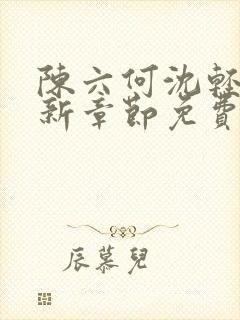 陳六何沈輕
新章節免費
辰慕兒